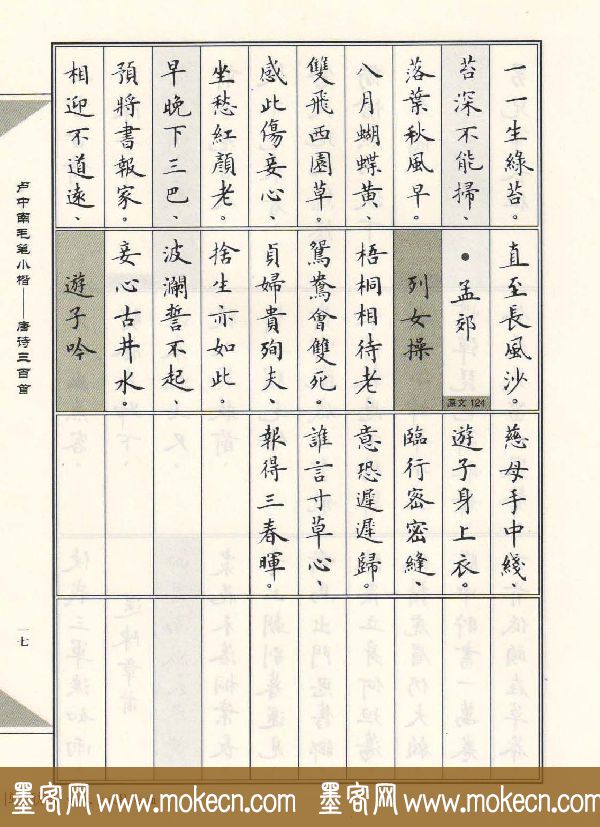 一一生綠苔。
苔深不能掃、
落葉秋風早。
八月蝴蝶黃、
雙飛西園草。
感此傷妾心、
坐愁紅顏老。
早晚下三巴、
預將書報家。
相迎不道遠、
直至長風沙。
●孟郊
原文 124
列女操
梧桐相待老、
鴛鴦會雙死。
貞婦貴殉夫、
捨生亦如此。
波瀾誓不起、
妾心古井水。
遊子吟
慈母手中綫、
遊子身上衣。
臨行密密縫、
意恐遲遲歸。
誰言寸草心、
報得三春暉。
卢中南毛笔小楷——唐诗三百首
一七
墨客网 www.mokecn.com 墨客网 www.mokecn.com